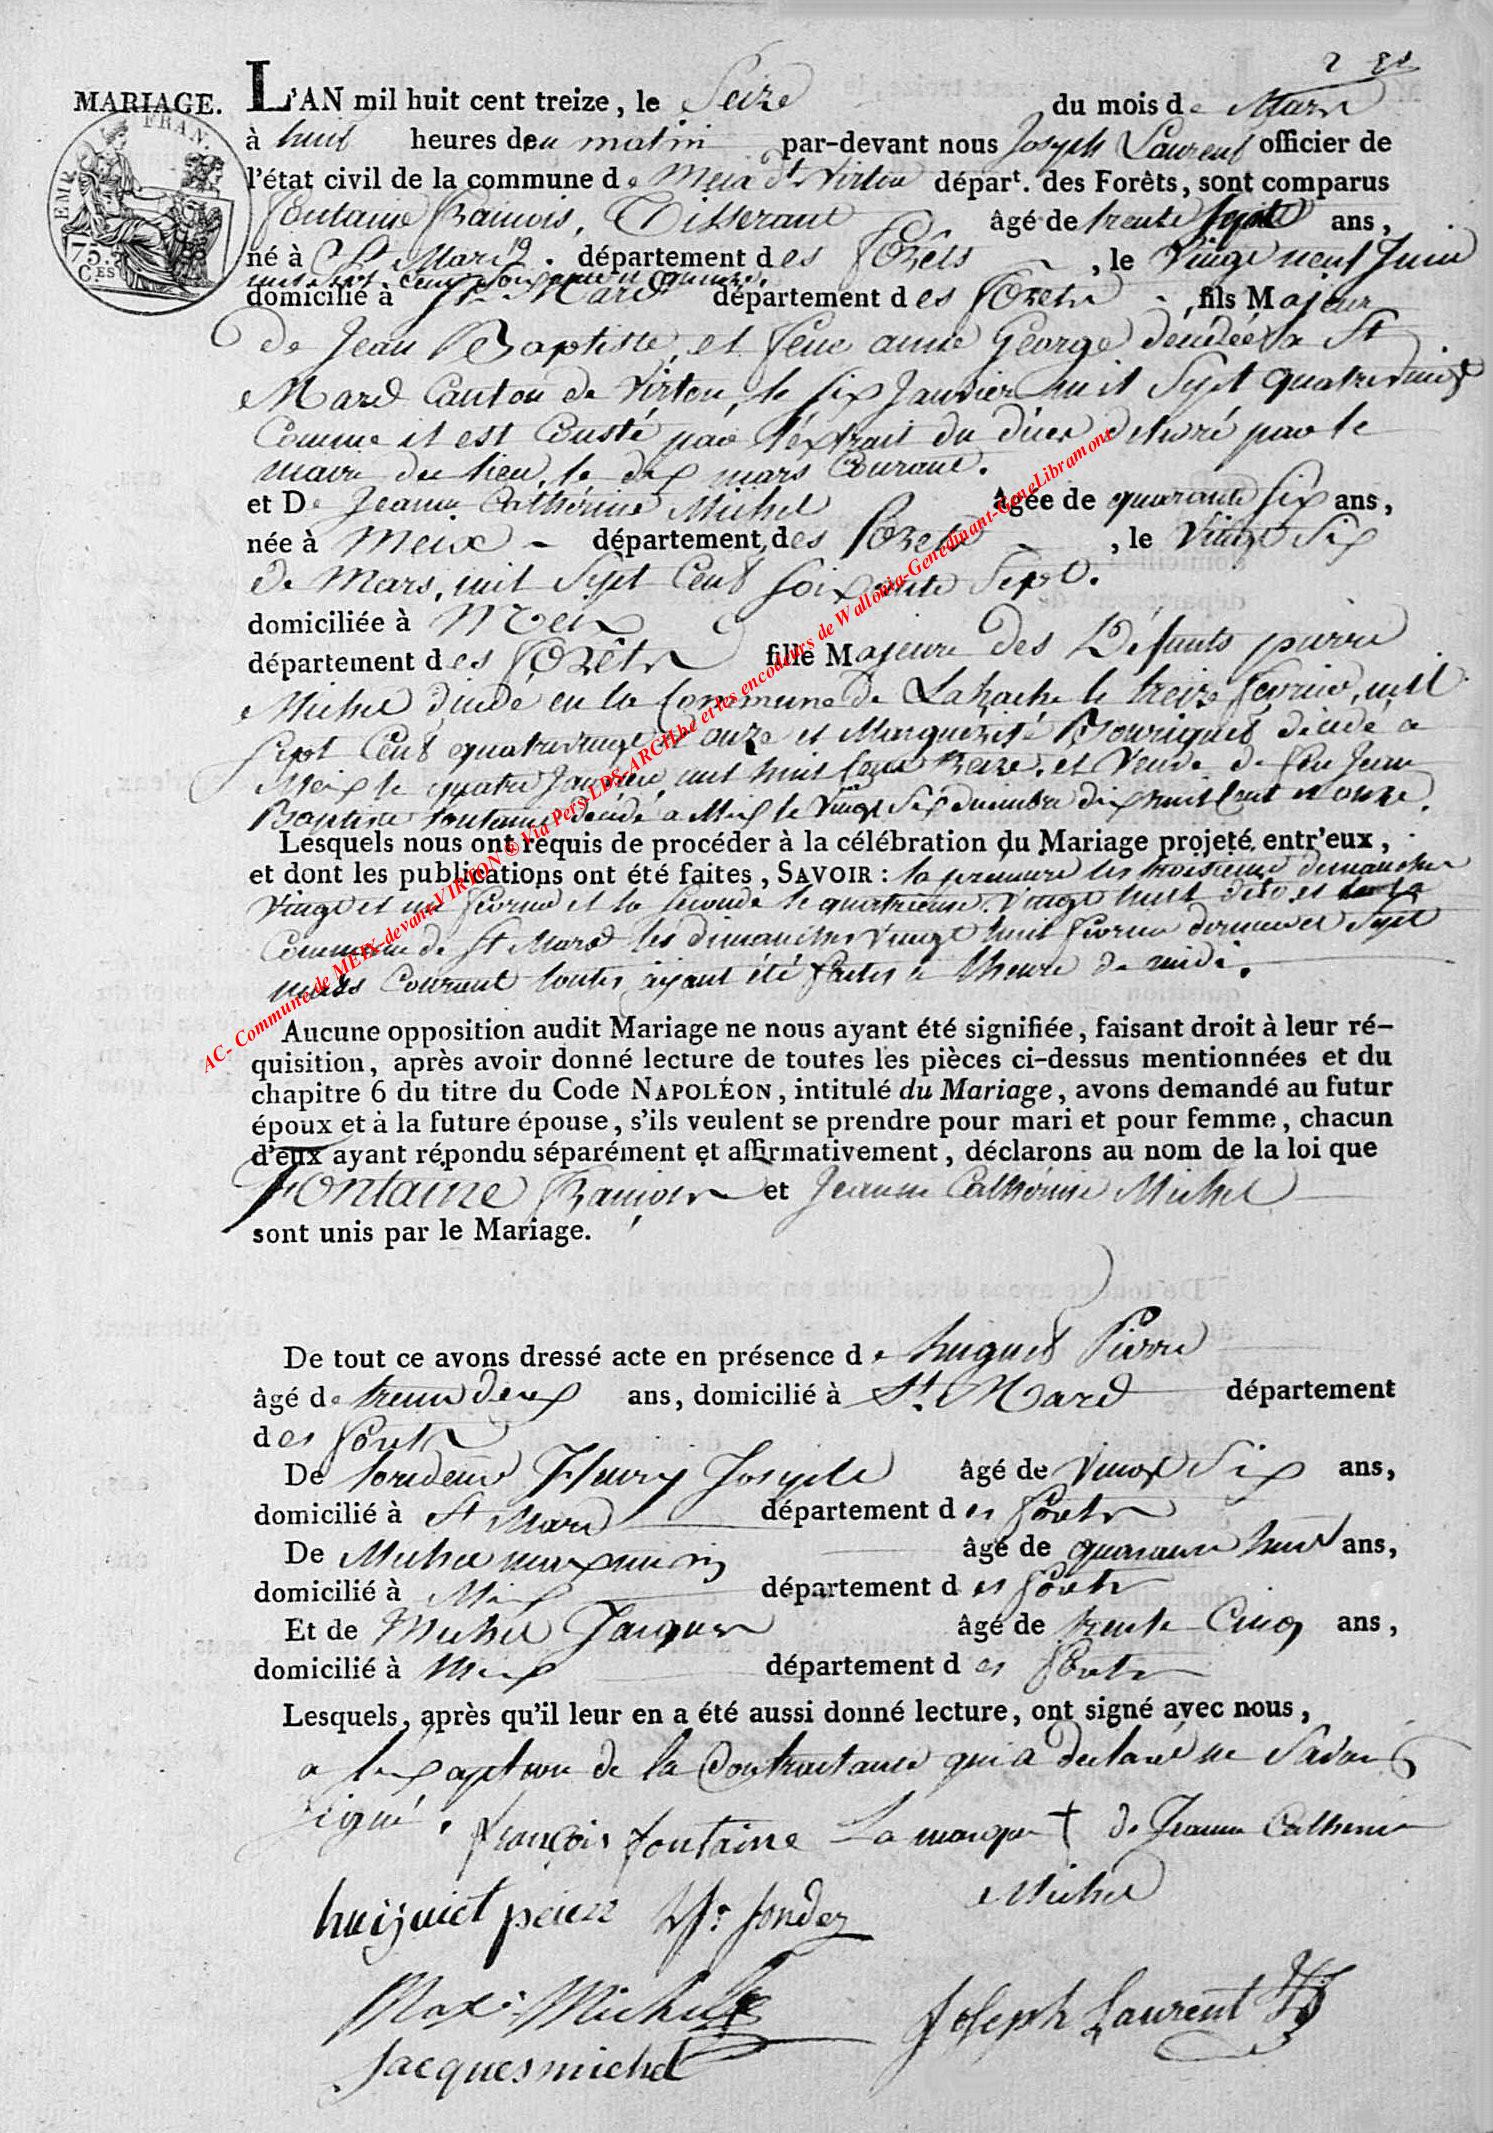 MARIAGE.
EMP. FRAN.
75. C.ES
L'AN mil huit cent treize, le Seize du mois de Mars
à huit heures deu matin par-devant nous Joseph Laurent officier de
l'état civil de la commune de Meix dt Virton départ. des Forêts, sont comparus
Fontaine François, Tisserant âgé de trente Sept ans,
né à St Mard. département des Forêts, le Vingt neuf Juin
mil Sept Cent Soixante et quinze.
domicilié à St Mard département des Forêts, fils Majeur
de Jean Baptiste, et feue anne George décédée a St
Mard Canton de Virton, le six Janvier mil Sept quatrevingt
Comme il est Consté par l'extrait du décès délivré par le
maire du lieu, le dix mars Courant.
et De Jeanne Cathérine Michel âgée de quarante six ans,
née à Meix département des Forêts, le Vingt Six
de Mars, mil Sept Cent soixante Sept.
domiciliée à Meix
département des Forêts fille Majeure des Défunts pierre
Michel décédé en la Commune de Lahache le treize février, mil
Sept Cent quatrevingt onze et Marguérite Bouriguet décédé a
Meix le quatre Janvier, mil huit Cent treize. et Veuve de feu Jean
Baptiste fontaine décédé a Meix le Vingt Six décembre dix huit Cent et onze.
Lesquels nous ont requis de procéder à la célébration du Mariage projeté entr'eux,
et dont les publications ont été faites, SAVOIR : la premiere les troisieme dimanche
Vingt et un février et la seconde le quatrieme Vingt huit dito, et
Commune de St Mard les dimanches Vingt huit février dernier et Sept
mars Courant toutes ayant été faites a lheure de midi.
Aucune opposition audit Mariage ne nous ayant été signifiée, faisant droit à leur ré-
quisition, après avoir donné lecture de toutes les pièces ci-dessus mentionnées et du
chapitre 6 du titre du Code NAPOLÉON, intitulé du Mariage, avons demandé au futur
époux et à la future épouse, s'ils veulent se prendre pour mari et pour femme, chacun
d'eux ayant répondu séparément et affirmativement, déclarons au nom de la loi que
Fontaine François et Jeanne Cathérine Michel
sont unis par le Mariage.
De tout ce avons dressé acte en présence de huguet Pierre
âgé de trente deux ans, domicilié à St. Mard département
des forêts
De Fleury Joseph âgé de Vingt Six ans,
domicilié à St Mard département des forêts
De Michel maximin âgé de quarante huit ans,
domicilié à Meix département des forêts
Et de Michel Jacques âgé de trente Cinq ans,
domicilié à Meix département des forêts
Lesquels, après qu'il leur en a été aussi donné lecture, ont signé avec nous,
a lexception de la Contractante qui a declaré ne Savoir
signé. françois fontaine La marque † de Jeanne Catherine
Michel
huijuiet peierr
Max. Michel
Joseph Laurent
Jacques michel
AC- Commune de MEIX-devant-VIRTON ® Via Pers-LDS-ARCH.be et les encodeurs de Wallonia-Genedinant-GeneLibramont